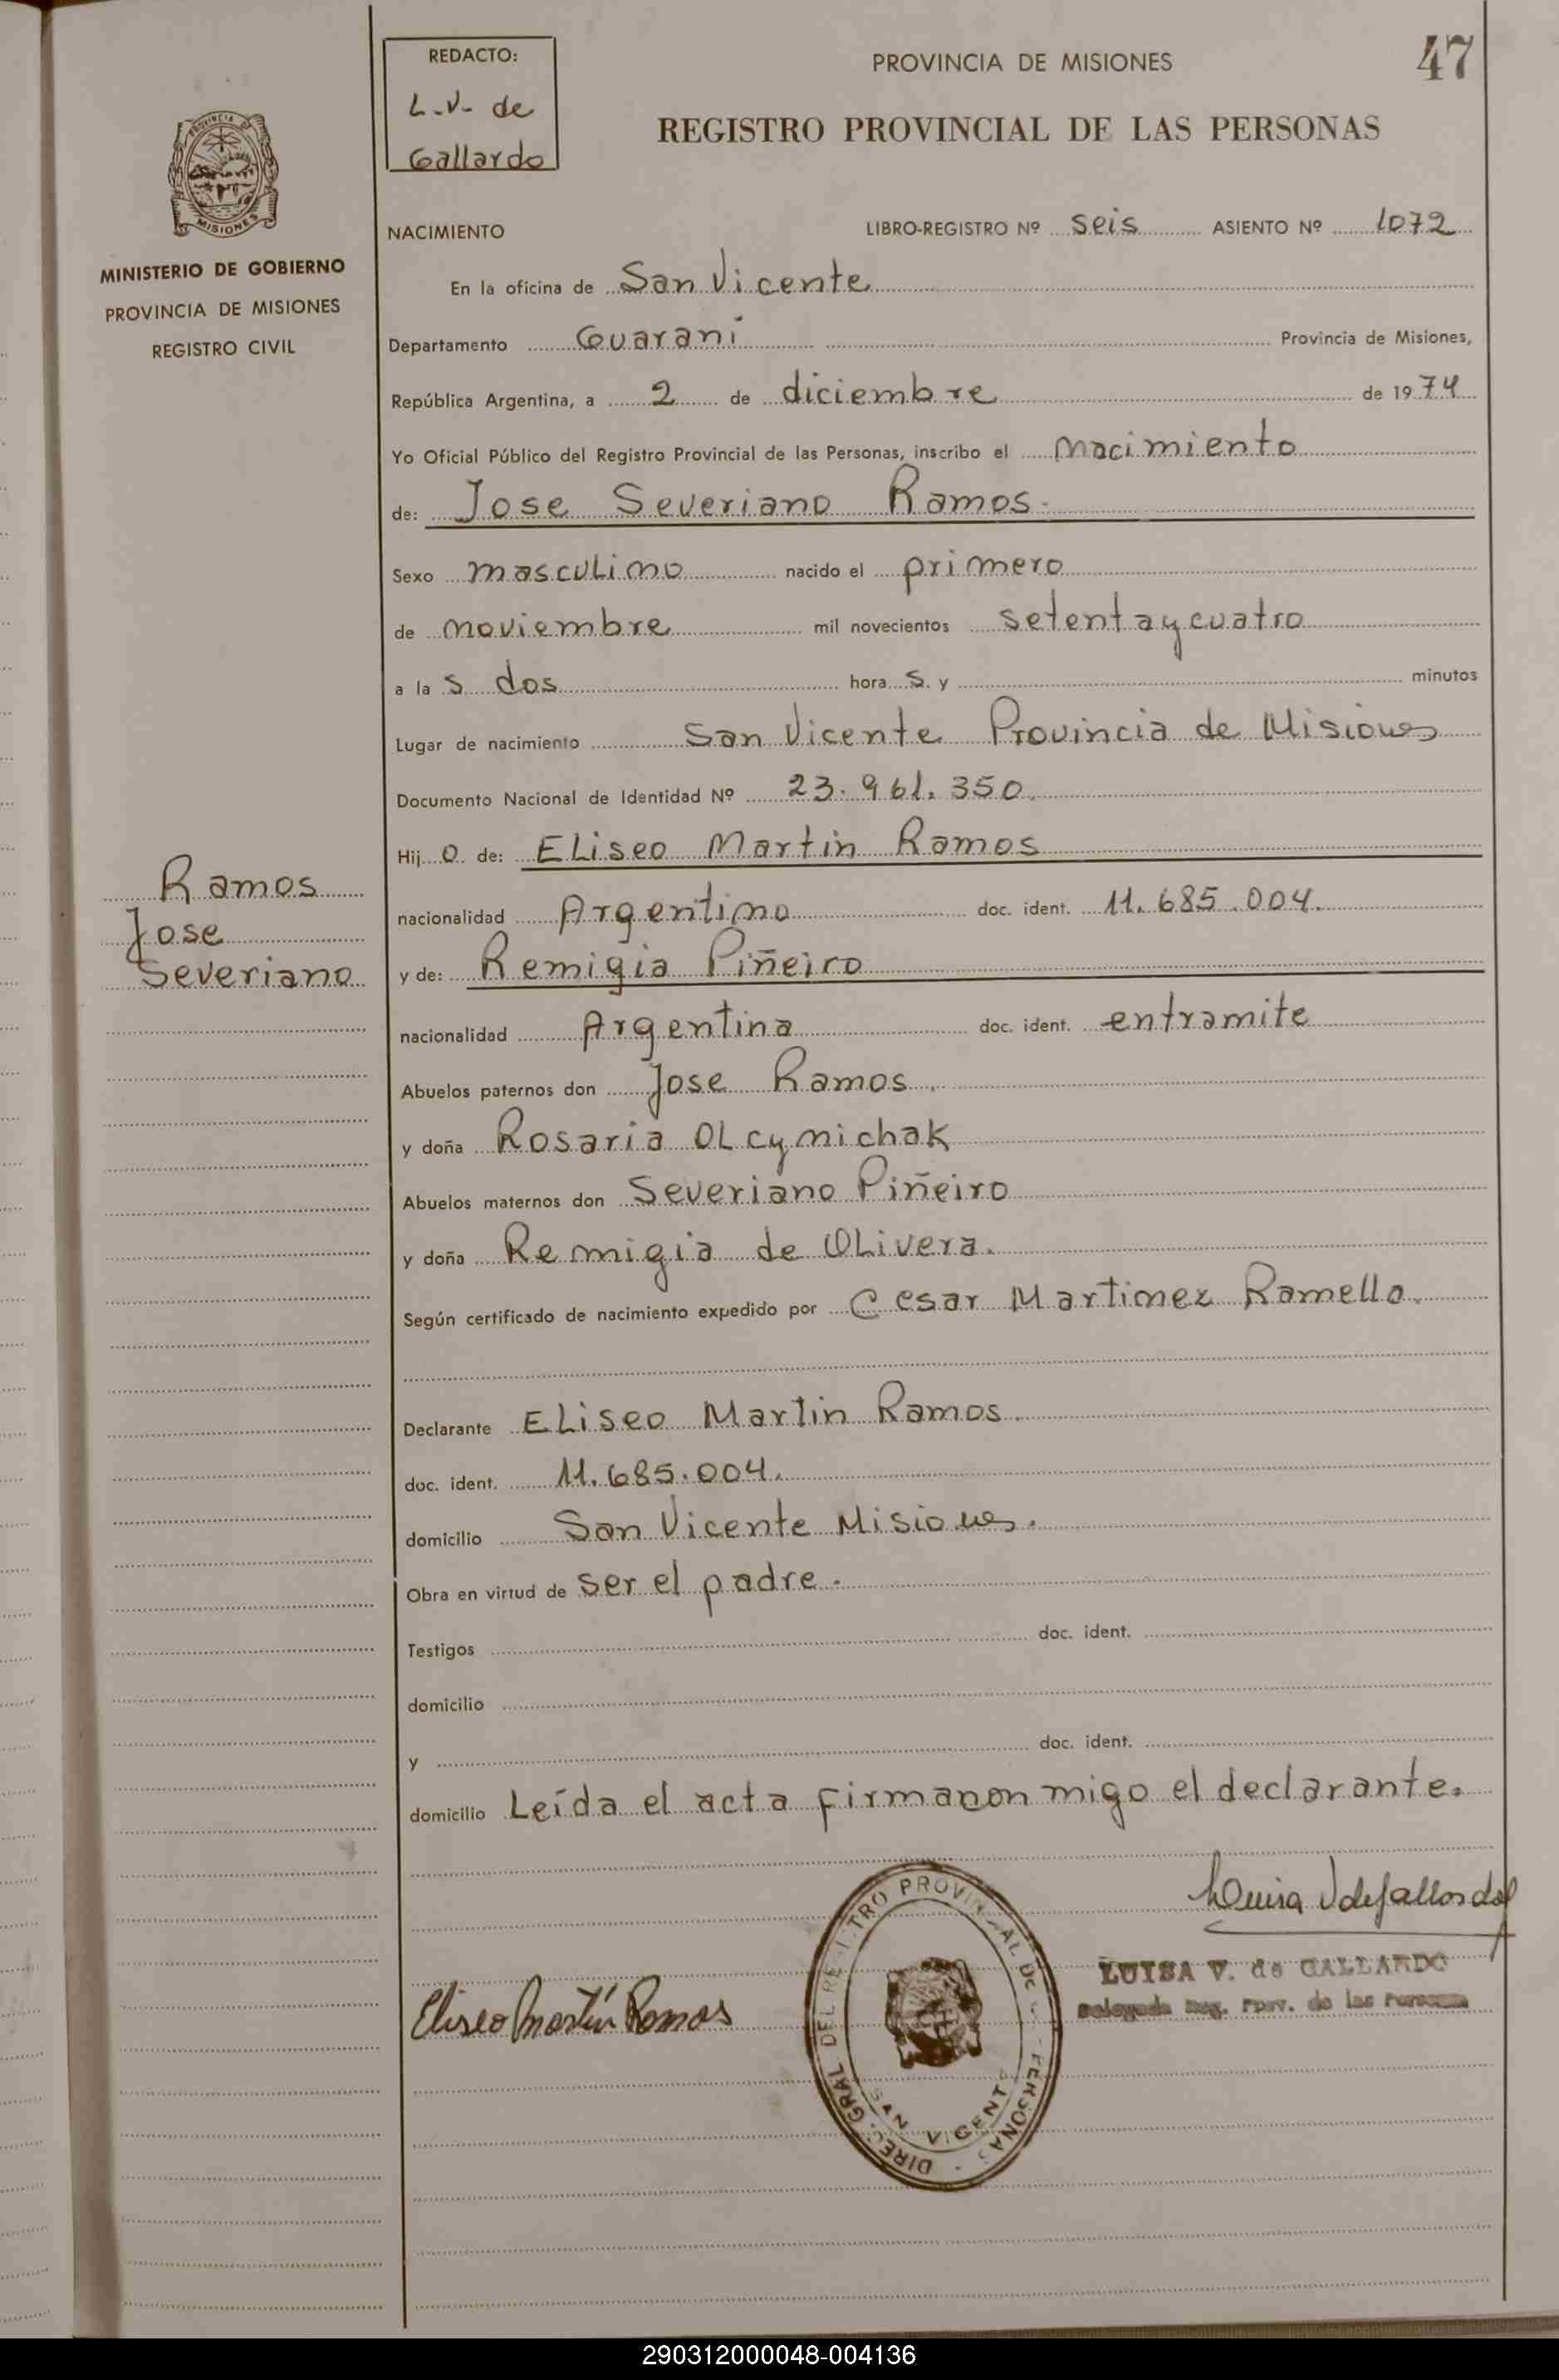 47
REDACTO:
L.V. de
Gallardo
PROVINCIA DE MISIONES
REGISTRO PROVINCIAL DE LAS PERSONAS
PROVINCIA DE
MISIONES
MINISTERIO DE GOBIERNO
PROVINCIA DE MISIONES
REGISTRO CIVIL
NACIMIENTO LIBRO-REGISTRO Nº seis ASIENTO Nº 1072
En la oficina de San Vicente
Departamento Guarani Provincia de Misiones,
República Argentina, a 2 de diciembre de 1974
Yo Oficial Público del Registro Provincial de las Personas, inscribo el nacimiento
de: Jose Severiano Ramos.
Sexo masculino nacido el primero
de noviembre mil novecientos setentaycuatro
a las dos horas y minutos
Lugar de nacimiento San Vicente Provincia de Misiones
Documento Nacional de Identidad Nº 23.961.350.
Hijo de: Eliseo Martin Ramos
nacionalidad Argentino doc. ident. 11.685.004.
Ramos
Jose
Severiano
y de: Remigia Piñeiro
nacionalidad Argentina doc. ident. entramite
Abuelos paternos don Jose Ramos.
y doña Rosaria Olcynichak
Abuelos maternos don Severiano Piñeiro
y doña Remigia de Olivera.
Según certificado de nacimiento expedido por Cesar Martinez Ramello.
Declarante Eliseo Martin Ramos.
doc. ident. 11.685.004.
domicilio San Vicente Misiones.
Obra en virtud de ser el padre.
Testigos doc. ident.
domicilio
y doc. ident.
domicilio Leída el acta firmanconmigo el declarante.
Luisa V de Gallardo
LUISA V. de GALLARDO
Delegada Reg. Prov. de las Personas
Eliseo Martín Ramos
DIREC. GRAL DEL REGISTRO PROVINCIAL DE LAS PERSONAS
SAN VICENTE
290312000048-004136